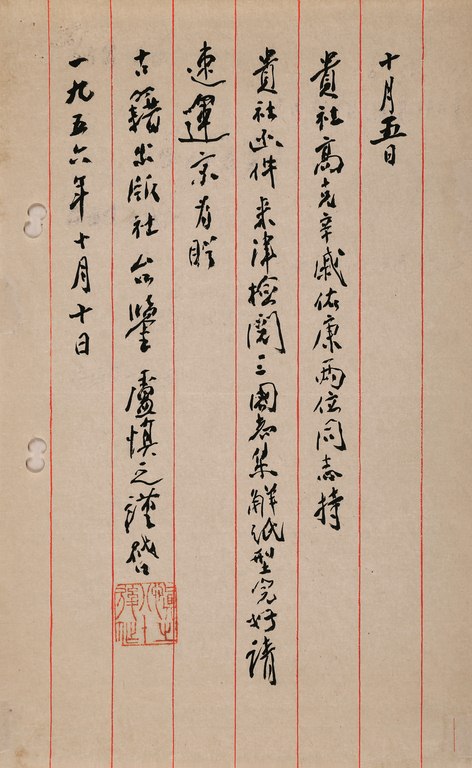 十月五日
貴社高克辛戚佑康兩位同志持
貴社函件来津檢閱三國志集解紙型完好請
速運京為盼
古籍出版社台鑒 盧慎之謹啓
一九五六年十月十日